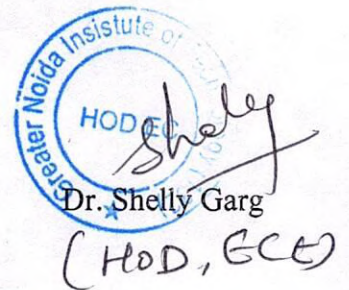 Greater Noida Insistute of
HOD EC
Shelly
Dr. Shelly Garg
(HOD, ECE)